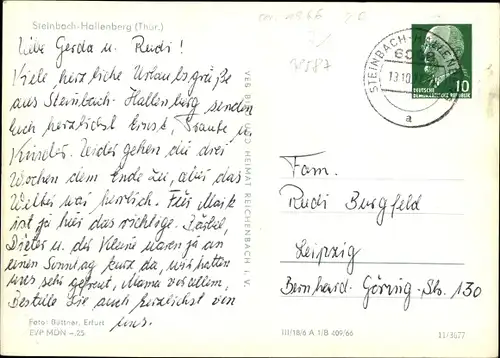 Steinbach-Hallenberg (Thür.)
Liebe Gerda u. Rudi!
Viele, herzliche Urlaubsgrüße
aus Steinbach-Hallenberg senden
Euch herzlichst Ernst, Traute u.
Kinder. Leider gehen die drei
Wochen dem Ende zu, aber das
Wetter war herrlich. Für Maik
ist ja hier das richtige. Bärbel,
Dieter u. der Kleine waren ja an
einen Sonntag kurz da, wir hatten
uns sehr gefreut, Mama vor allem,
Bestelle Sie auch herzlichst von
uns.
Foto: Büttner, Erfurt
EVP MDN -,25
VEB HEIMAT REICHENBACH i. V.
STEINBACH-HALLENB
a
10
DEUTSCHE
DEMOKRATISCHE REPUBLIK
Fam.
Rudi Burgfeld
Leipzig
Bernhard-Göring-Str. 130
III/18/6 A 1/B 409/66
11/3677